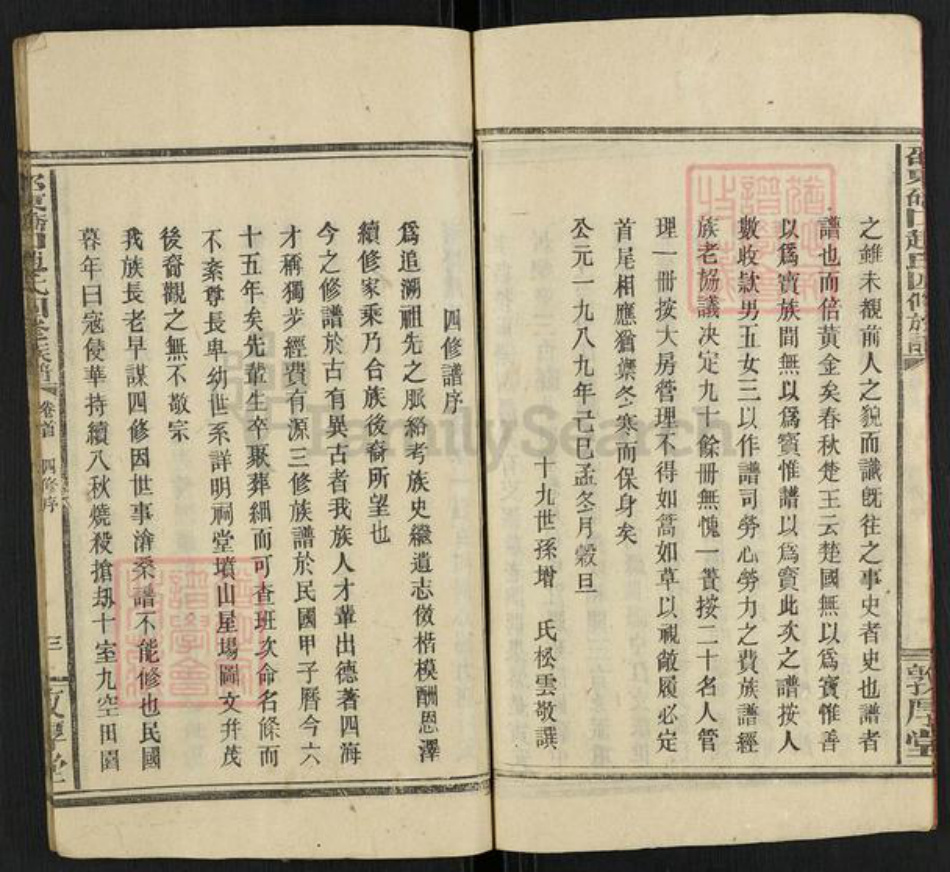 之雖未覩前人之貌而識旣往之事史者史也譜者
譜也而倍黃金矣春秋楚王云楚國無以爲寶惟善
以爲寶族間無以爲寶惟譜以爲寶此次之譜按人
數收款男五女三以作譜司勞心勞力之費族譜經
族老協議决定九十餘册無愧一蕢按二十名人管
理一册按大房管理不得如蒿如草以視敝履必定
首尾相應猶禦冬寒而保身矣
公元一九八九年己巳孟冬月穀旦
十九世孫增 氏松雲敬譔
敦厚堂
四修譜序
爲追溯祖先之脈絡考族史繼遺志傚楷模酬恩澤
續修家乘乃合族後裔所望也
今之修譜於古有異古者我族人才輩出德著四海
才稱獨步經費有源三修族譜於民國甲子曆今六
十五年矣先輩生卒聚葬細而可查班次命名條而
不紊尊長卑幼世系詳明祠堂墳山星場圖文幷茂
後裔觀之無不敬宗
我族長老早謀四修因世事滄桑譜不能修也民國
暮年日寇侵華持續八秋燒殺搶刼十室九空田園
卷首 四修序
三
FamilySearch